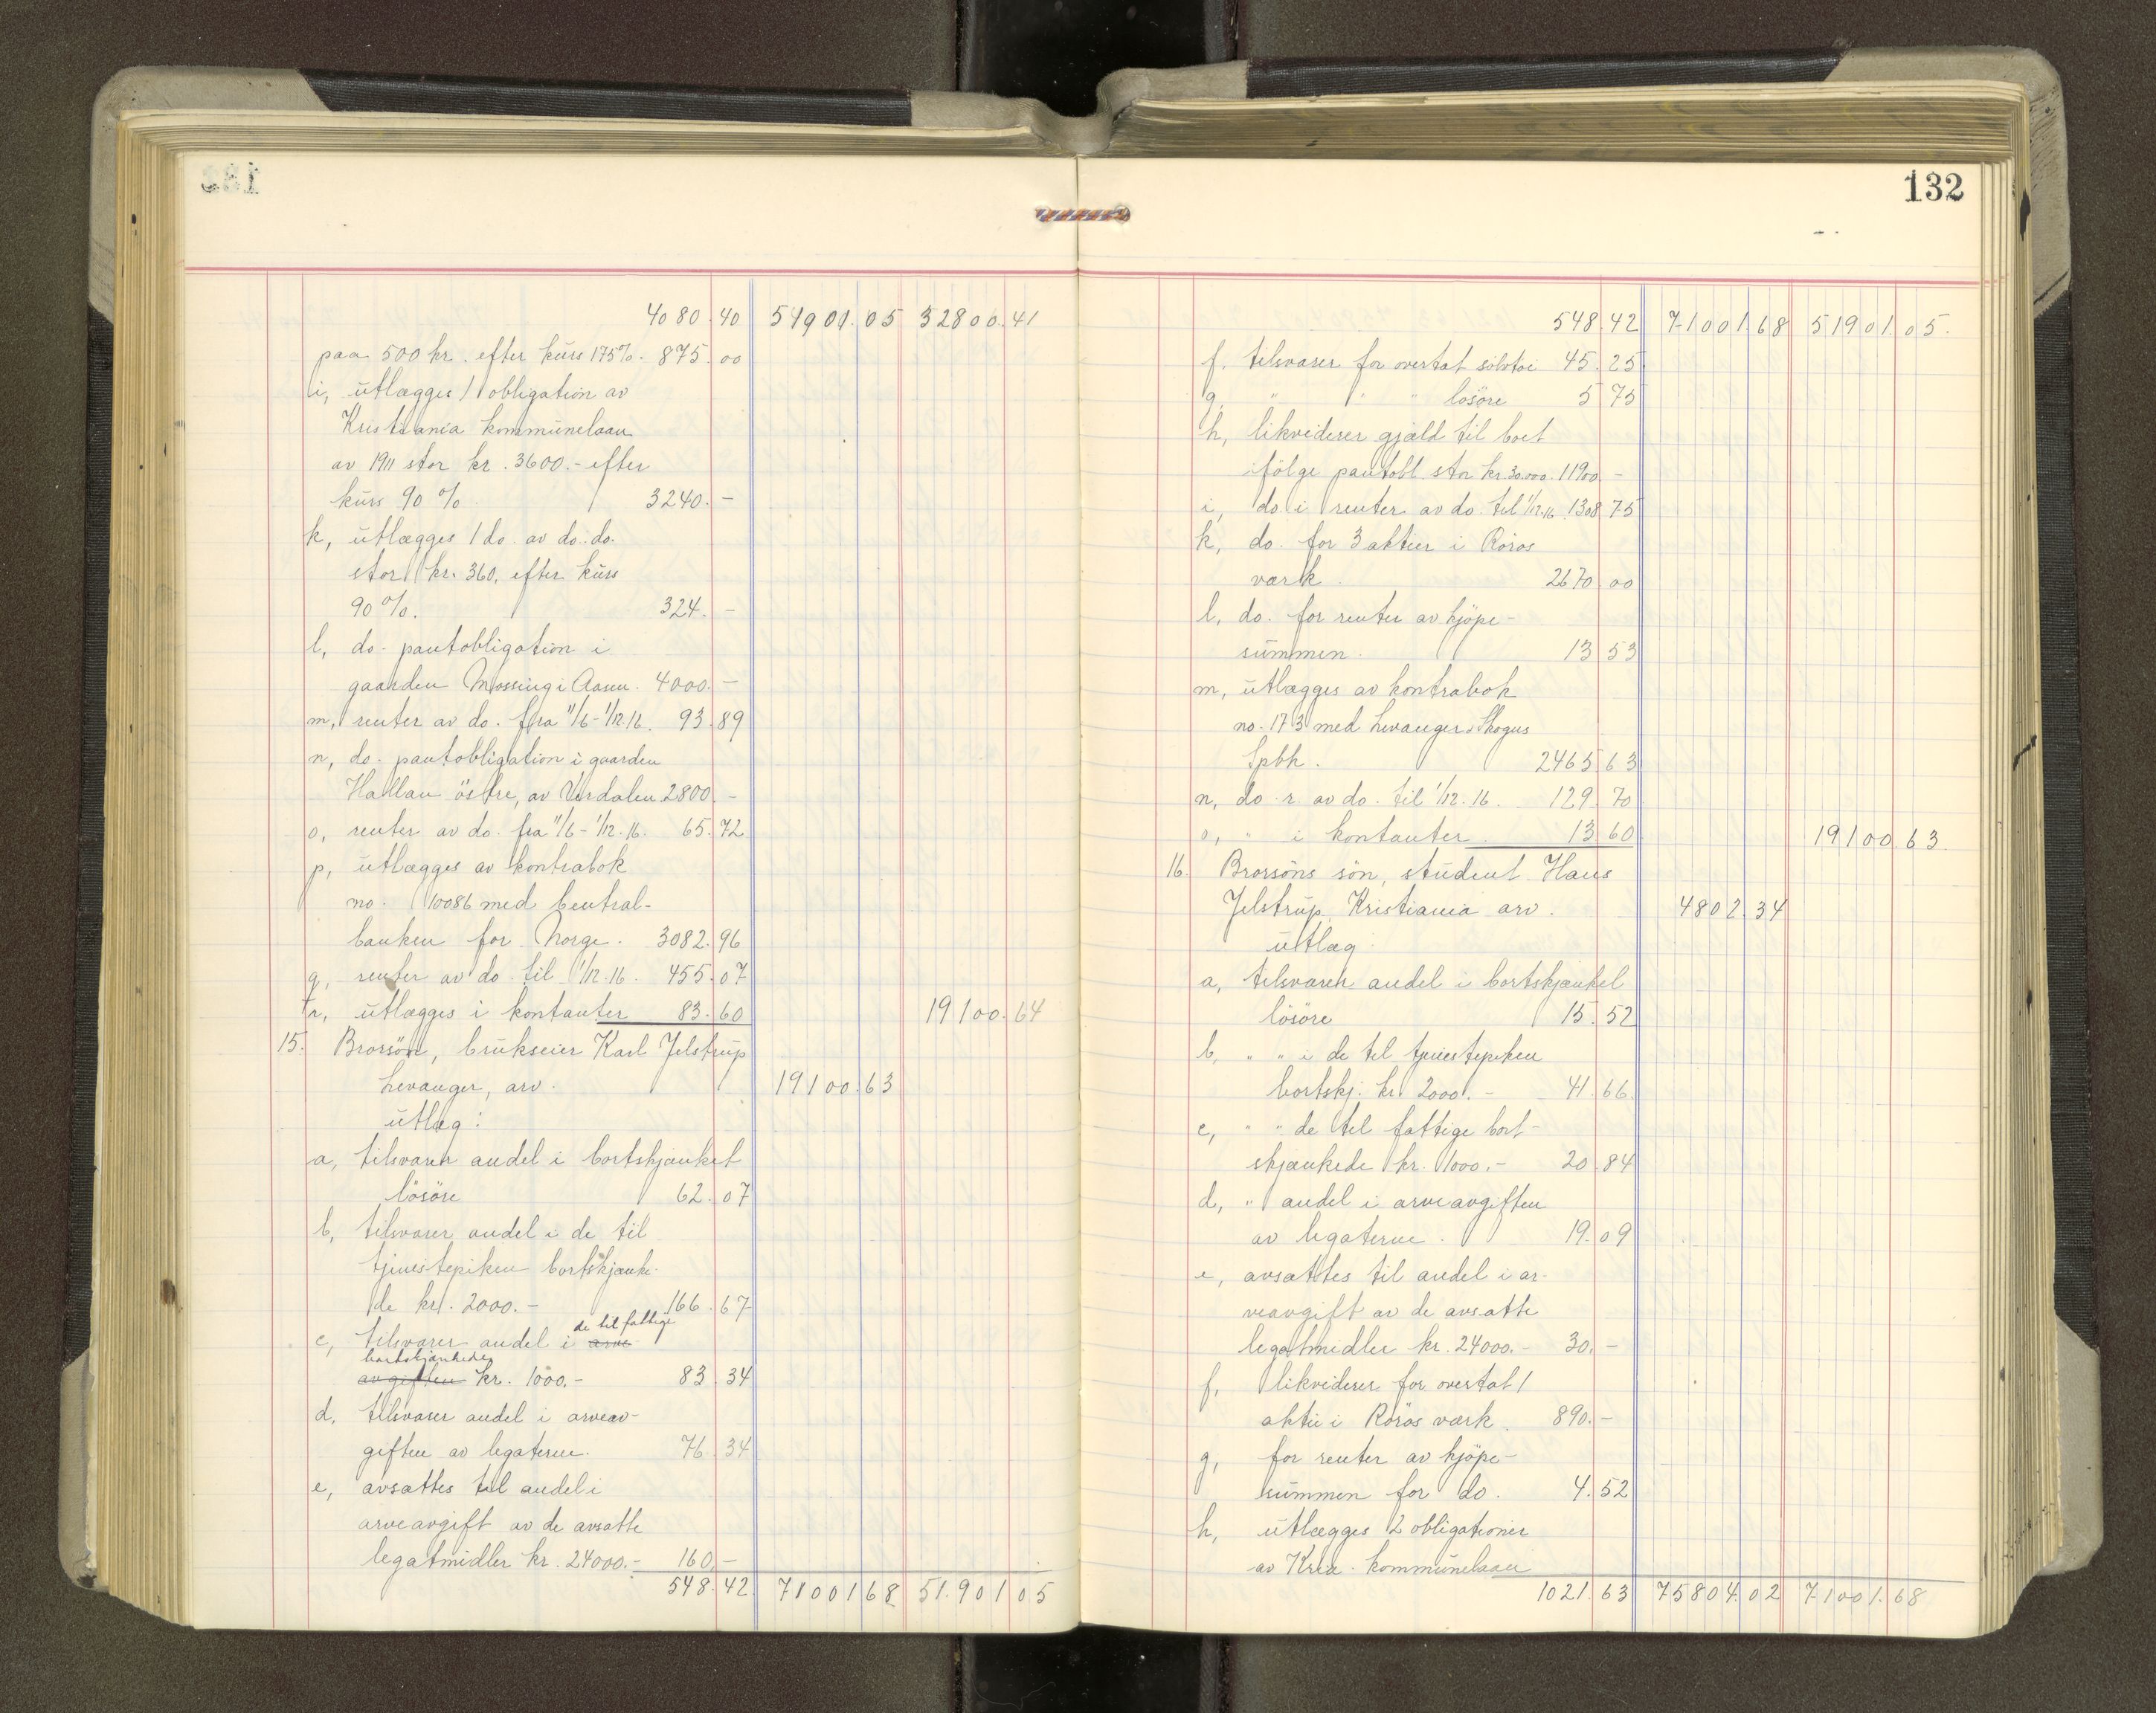 132
4080.40 51901.05 32800.41
paa 500 kr. efter kurs 175%. 875.00
i, utlægges 1 obligation av
Kristiania kommunelaan
av 1911 stor kr. 3600.- efter
kurs 90 % 3240.-
k, utlægges 1 do. av do. do.
stor kr. 360, efter kurs
90 %. 324.-
l, do. pantobligation i
gaarden Mossing i Aasen. 4000.-
m, renter av do. fra 11/6-1/12.16. 93.89
n, do. pantobligation i gaarden
Hallan östre, av Verdalen 2800.-
o, renter av do. fra 11/6-1/12.16. 65.72
p, utlægges av kontrabok
no. 10086 med Central-
banken for Norge. 3082.96
q, renter av do. til 1/12.16. 455.07
r, utlægges i kontanter 83.60 19100.64
15. Brorsön, brukseier Karl Jelstrup
Levanger, arv. 19100.63
utlæg:
a, tilsvarer andel i bortskjænket
lösöre 62.07
b, tilsvarer andel i de til
tjenestepiken bortskjænke-
de kr. 2000.- 166.67
de til fattige
c, tilsvarer andel i arve
bortskjænkede
avgiften kr. 1000.- 83.34
d, tilsvarer andel i arveav-
giften av legaterne. 76.34
e, avsættes til andel i
arveavgift av de avsatte
legatmidler kr. 24000.- 160.-
548.42 71001.68 51.901.05
132
548.42 71001.68 51901.05.
f. tilsvarer for overtat sölvtöi 45.25
g, " " " lösöre 5.75
h, likviderer gjæld til boet
ifölge pantobl. stor kr. 30.000. 11900.-
i, do. i renter av do. til 1/12.16. 1308.75
k, do. for 3 aktier i Röros
værk. 2670.00
l, do. for renter av kjöpe-
summen. 13.53
m, utlægges av kontrabok
no. 173 med Levanger & Skogns
Spbk. 2465.63
n, do. r. av do. til 1/12.16. 129.70
o, " i kontanter. 13.60 19100.63.
16. Brorsöns sön, student Hans
Jelstrup, Kristiania arv. 4802.34
utlæg
a, tilsvarer andel i bortskjænket
lösöre 15.52
b, " " i de til tjenestepiken
bortskj. kr. 2000.- 41.66.
c, " " de til fattige bort-
skjænkede kr. 1000.- 20.84
d, " andel i arveavgiften
av legaterne. 19.09
e, avsættes til andel i ar-
veavgift av de avsatte
legatmidler kr. 24000.- 30.-
f, likviderer for overtat 1
aktie i Röros værk. 890.-
g, for renter av kjöpe-
summen for do. 4.52
h, utlægges 2 obligationer
av Kria. kommunelaan
1021.63 75804.02 71001.68